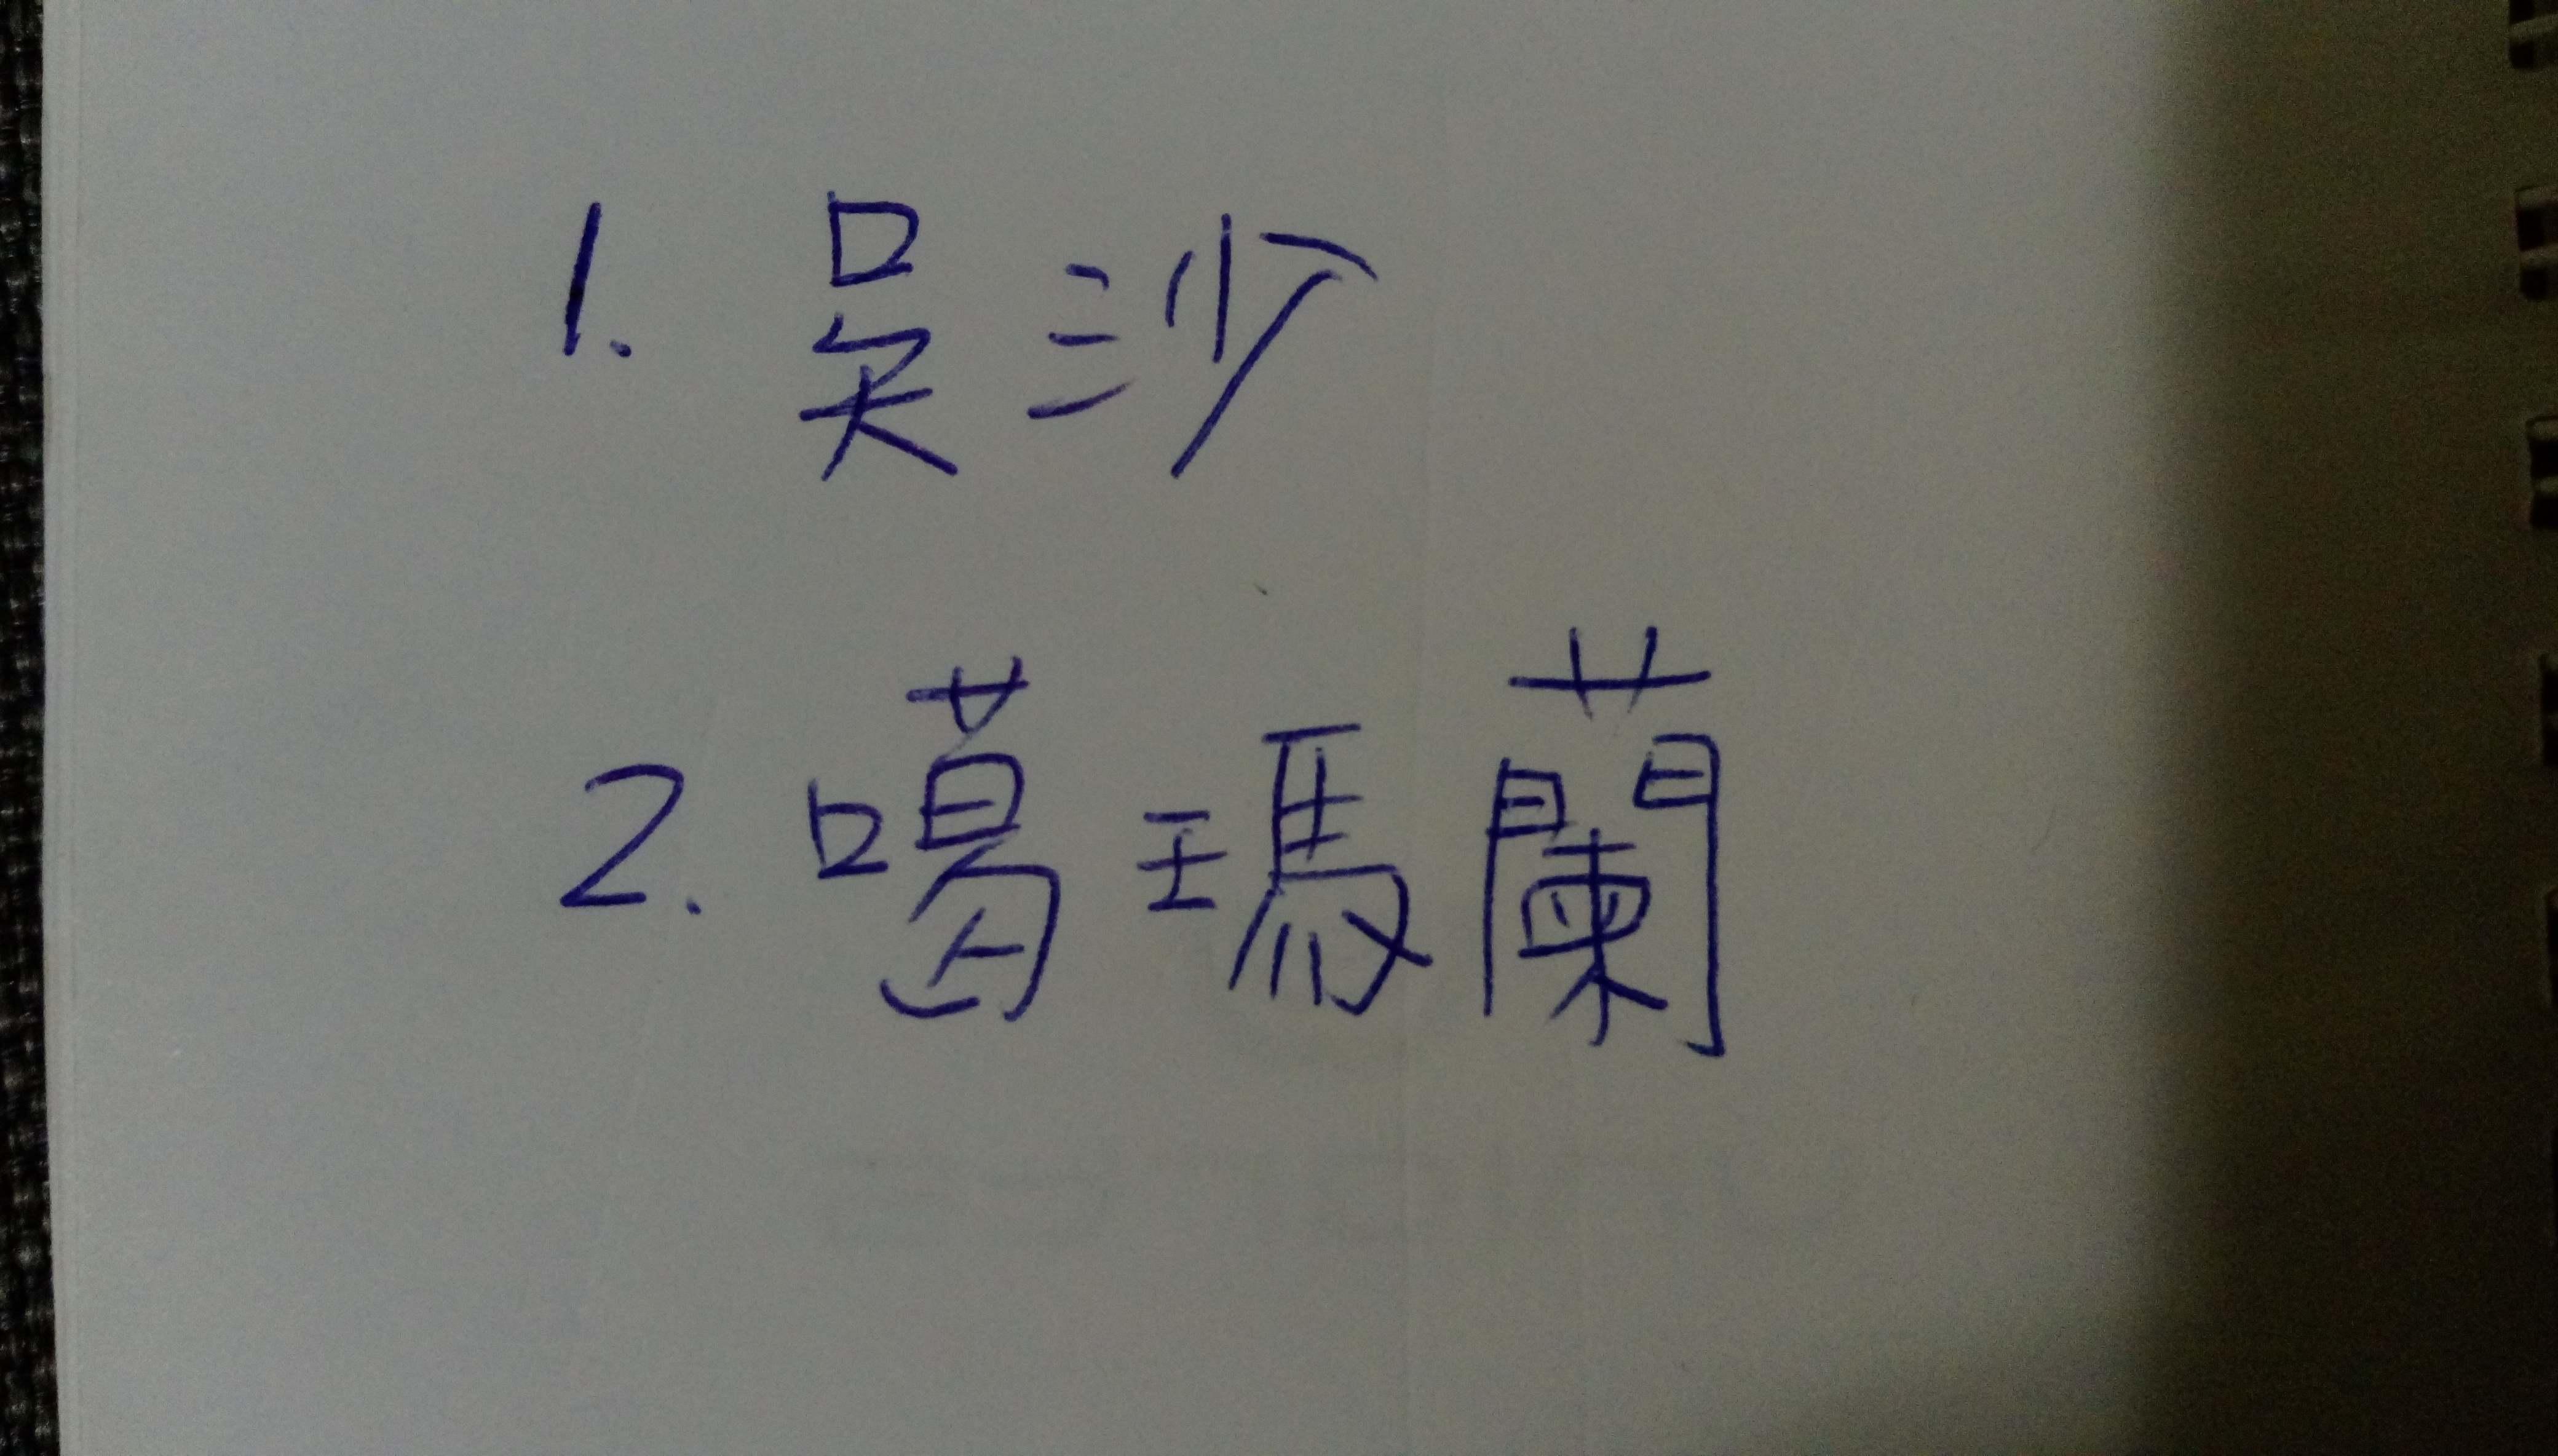 1. 吳沙
2. 噶瑪蘭